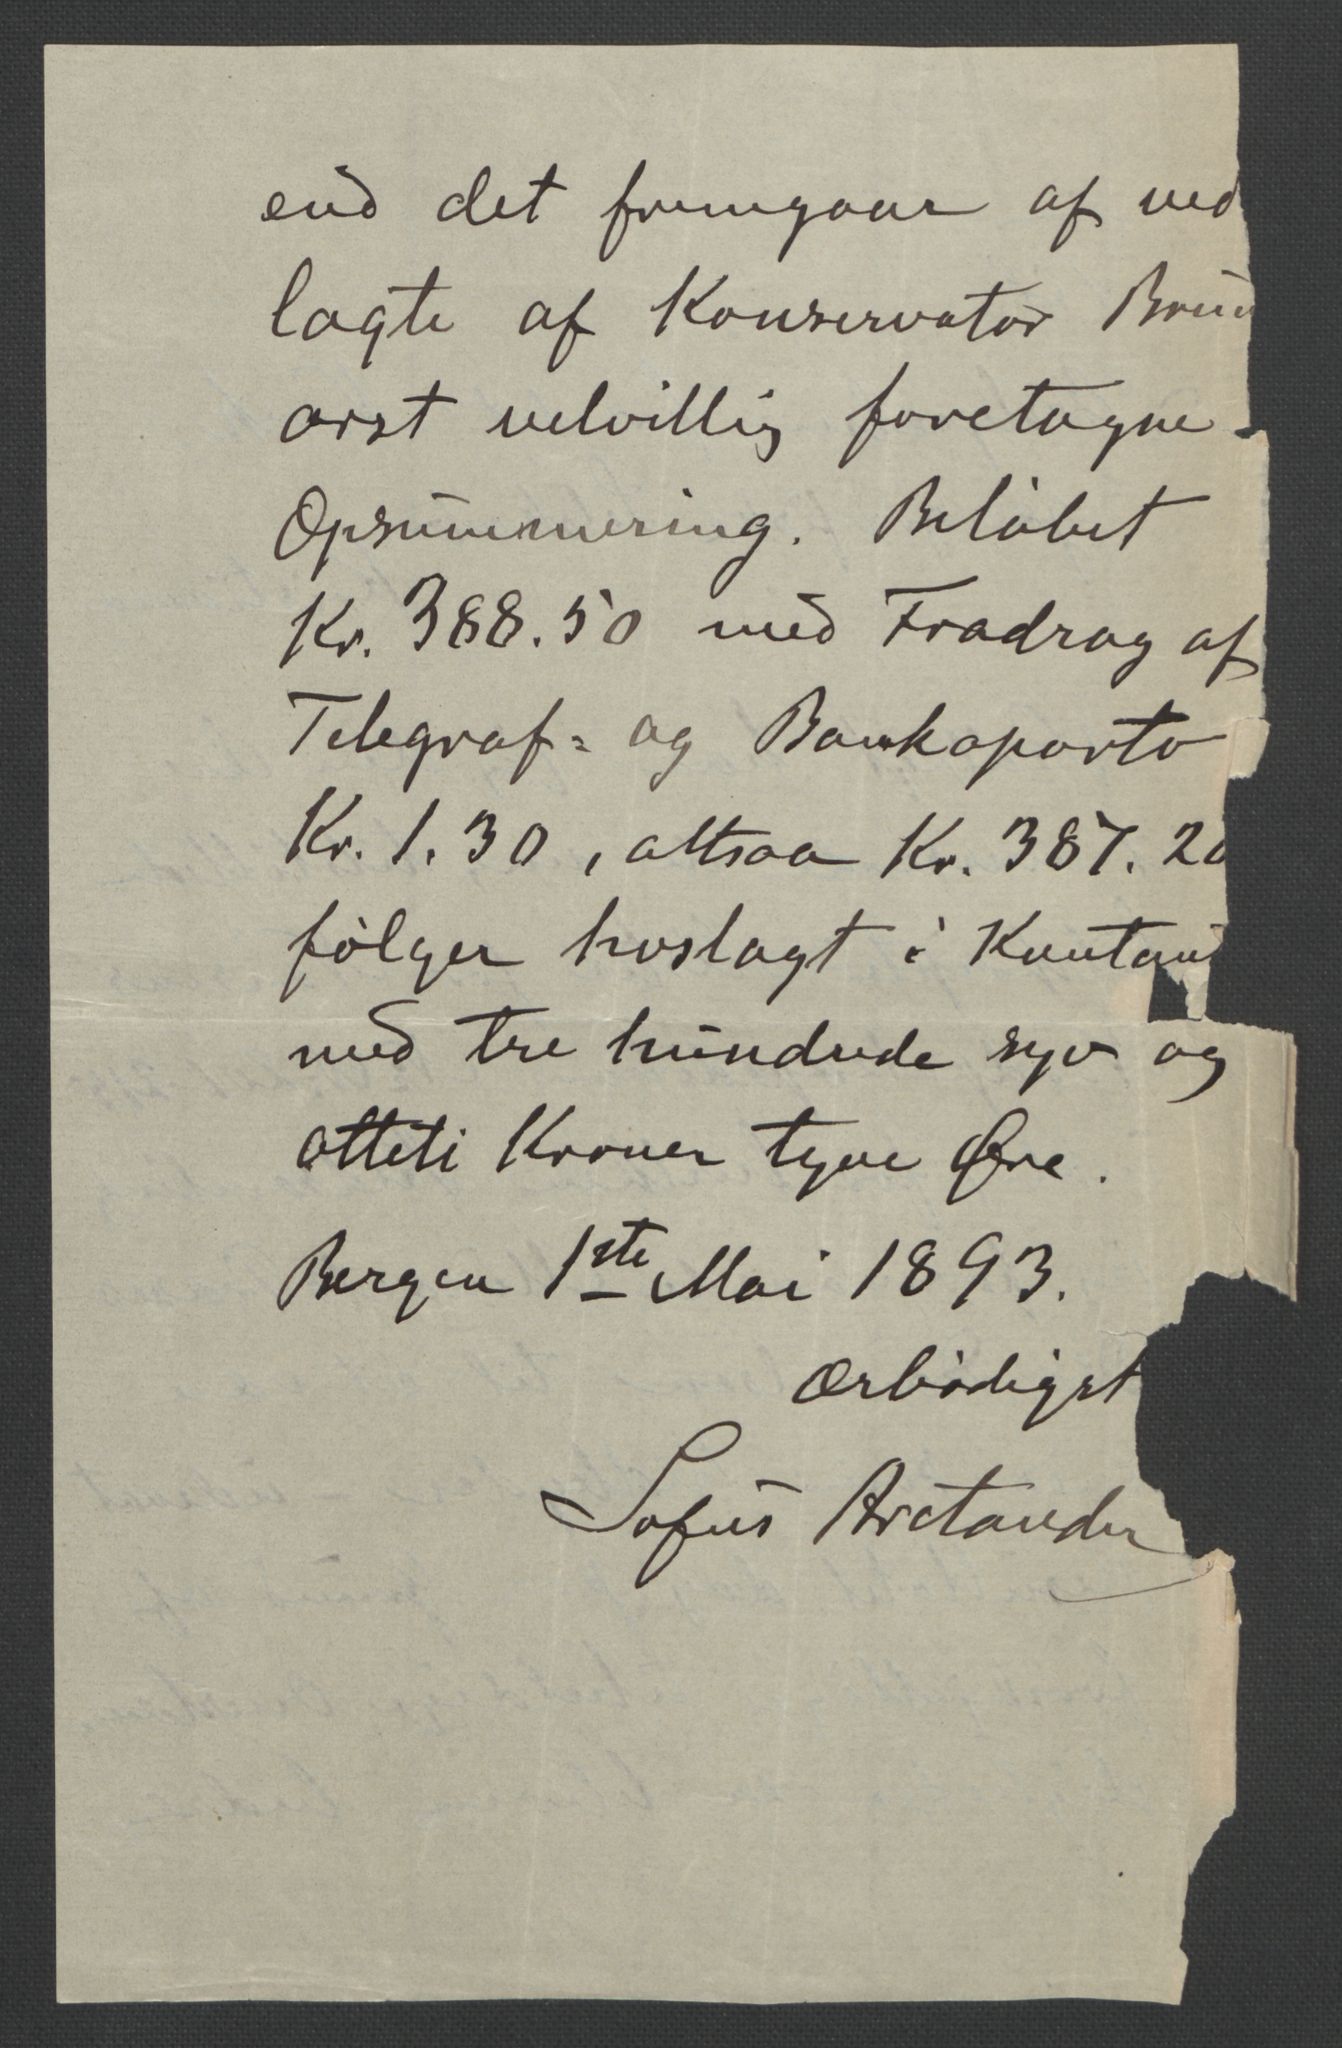 end det fremgaar af ved
lagte af Konservator Brun
orst velvillig foretagne
Opsummering. Beløbet
Kr. 388.50 med Fradrag af
Telegraf= og Bankoporto
Kr. 1.30, altsaa Kr. 387.20
følger hoslagt i Kontant
med tre hundrede syv og
otteti Kroner tyve Øre.
Bergen 1ste Mai 1893.
Ærbødigst
Sofus Arctander